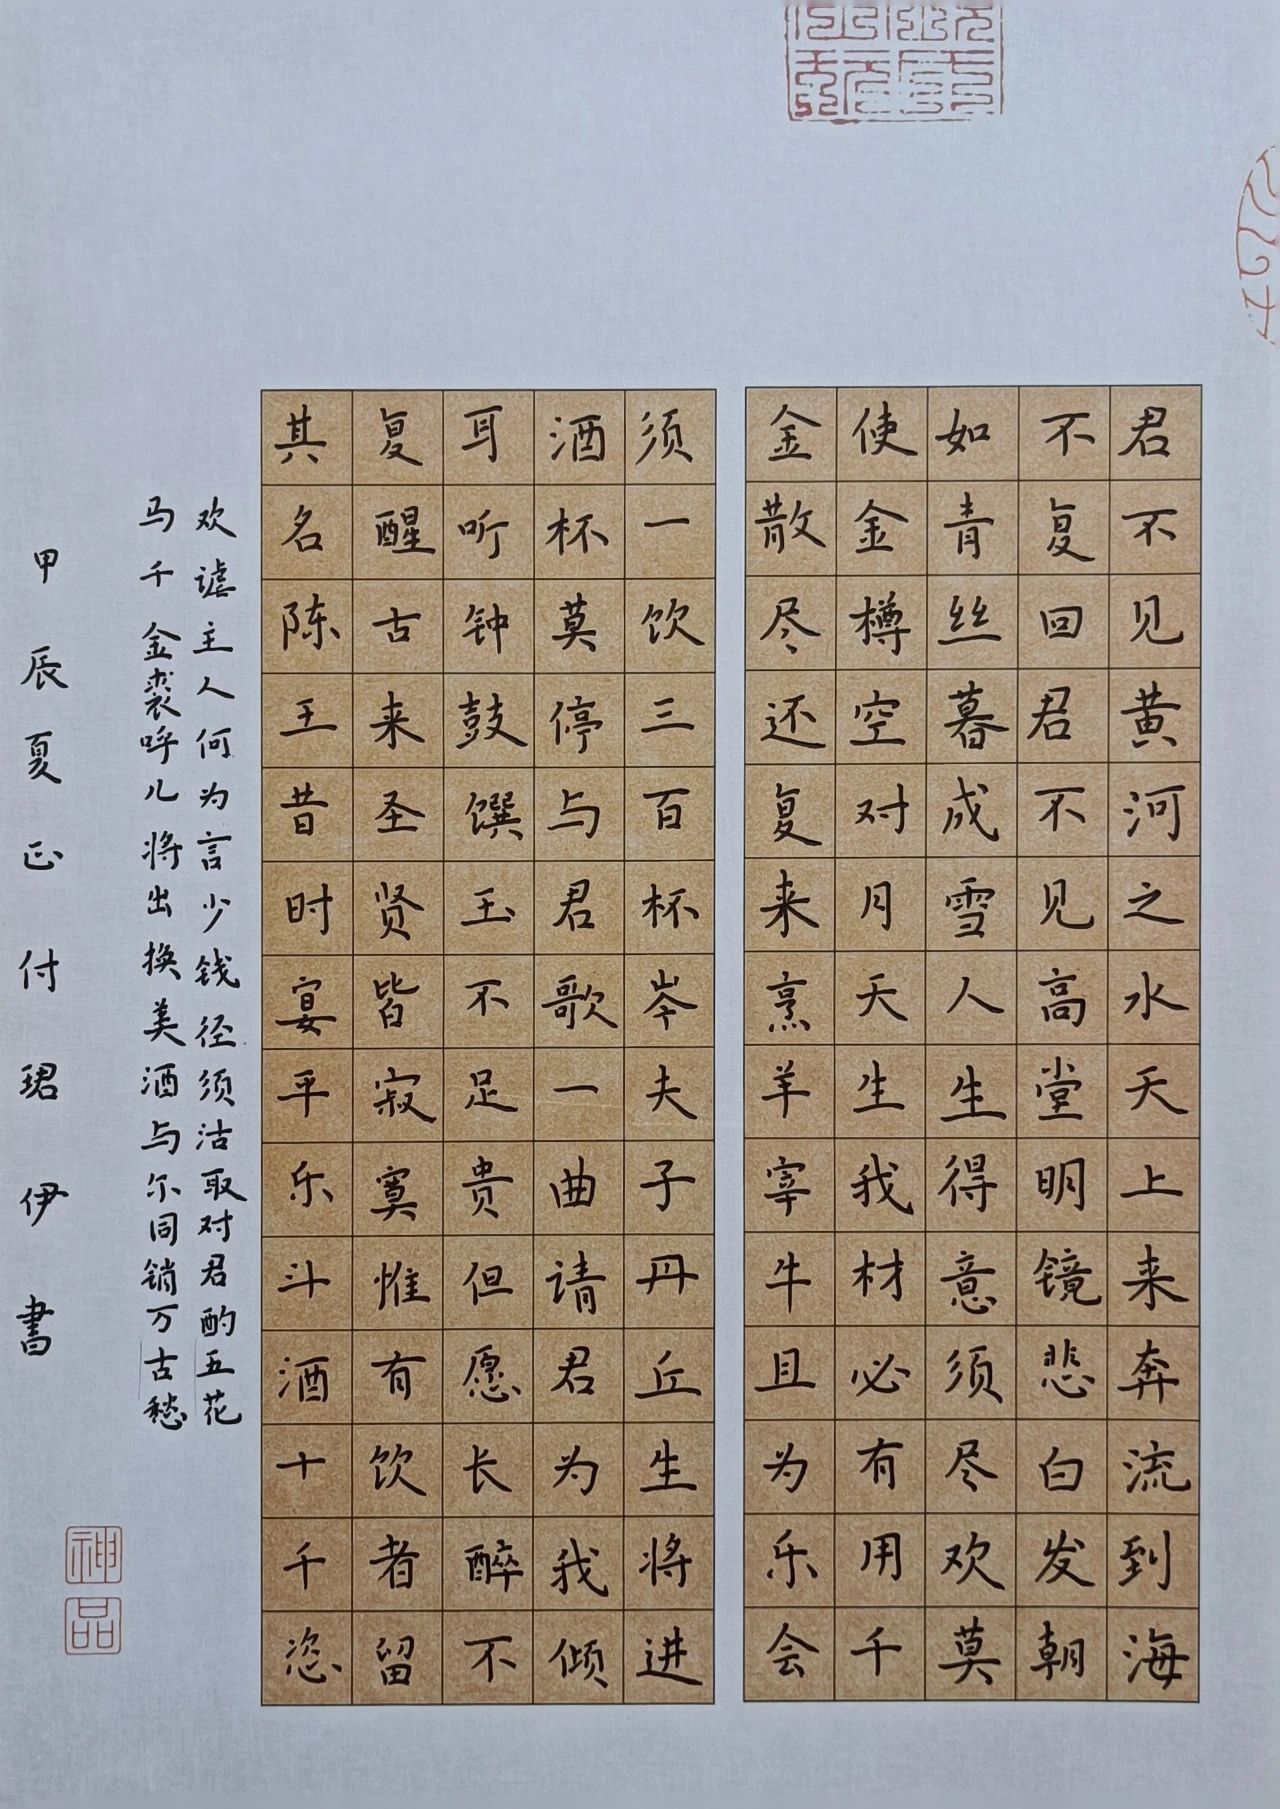 君不见黄河之水天上来奔流到海
不复回君不见高堂明镜悲白发朝
如青丝暮成雪人生得意须尽欢莫
使金樽空对月天生我材必有用千
金散尽还复来烹羊宰牛且为乐会
须一饮三百杯岑夫子丹丘生将进
酒杯莫停与君歌一曲请君为我倾
耳听钟鼓馔玉不足贵但愿长醉不
复醒古来圣贤皆寂寞惟有饮者留
其名陈王昔时宴平乐斗酒十千恣
欢谑主人何为言少钱径须沽取对君酌五花
马千金裘呼儿将出换美酒与尔同销万古愁
甲辰夏正付珺伊書
神品